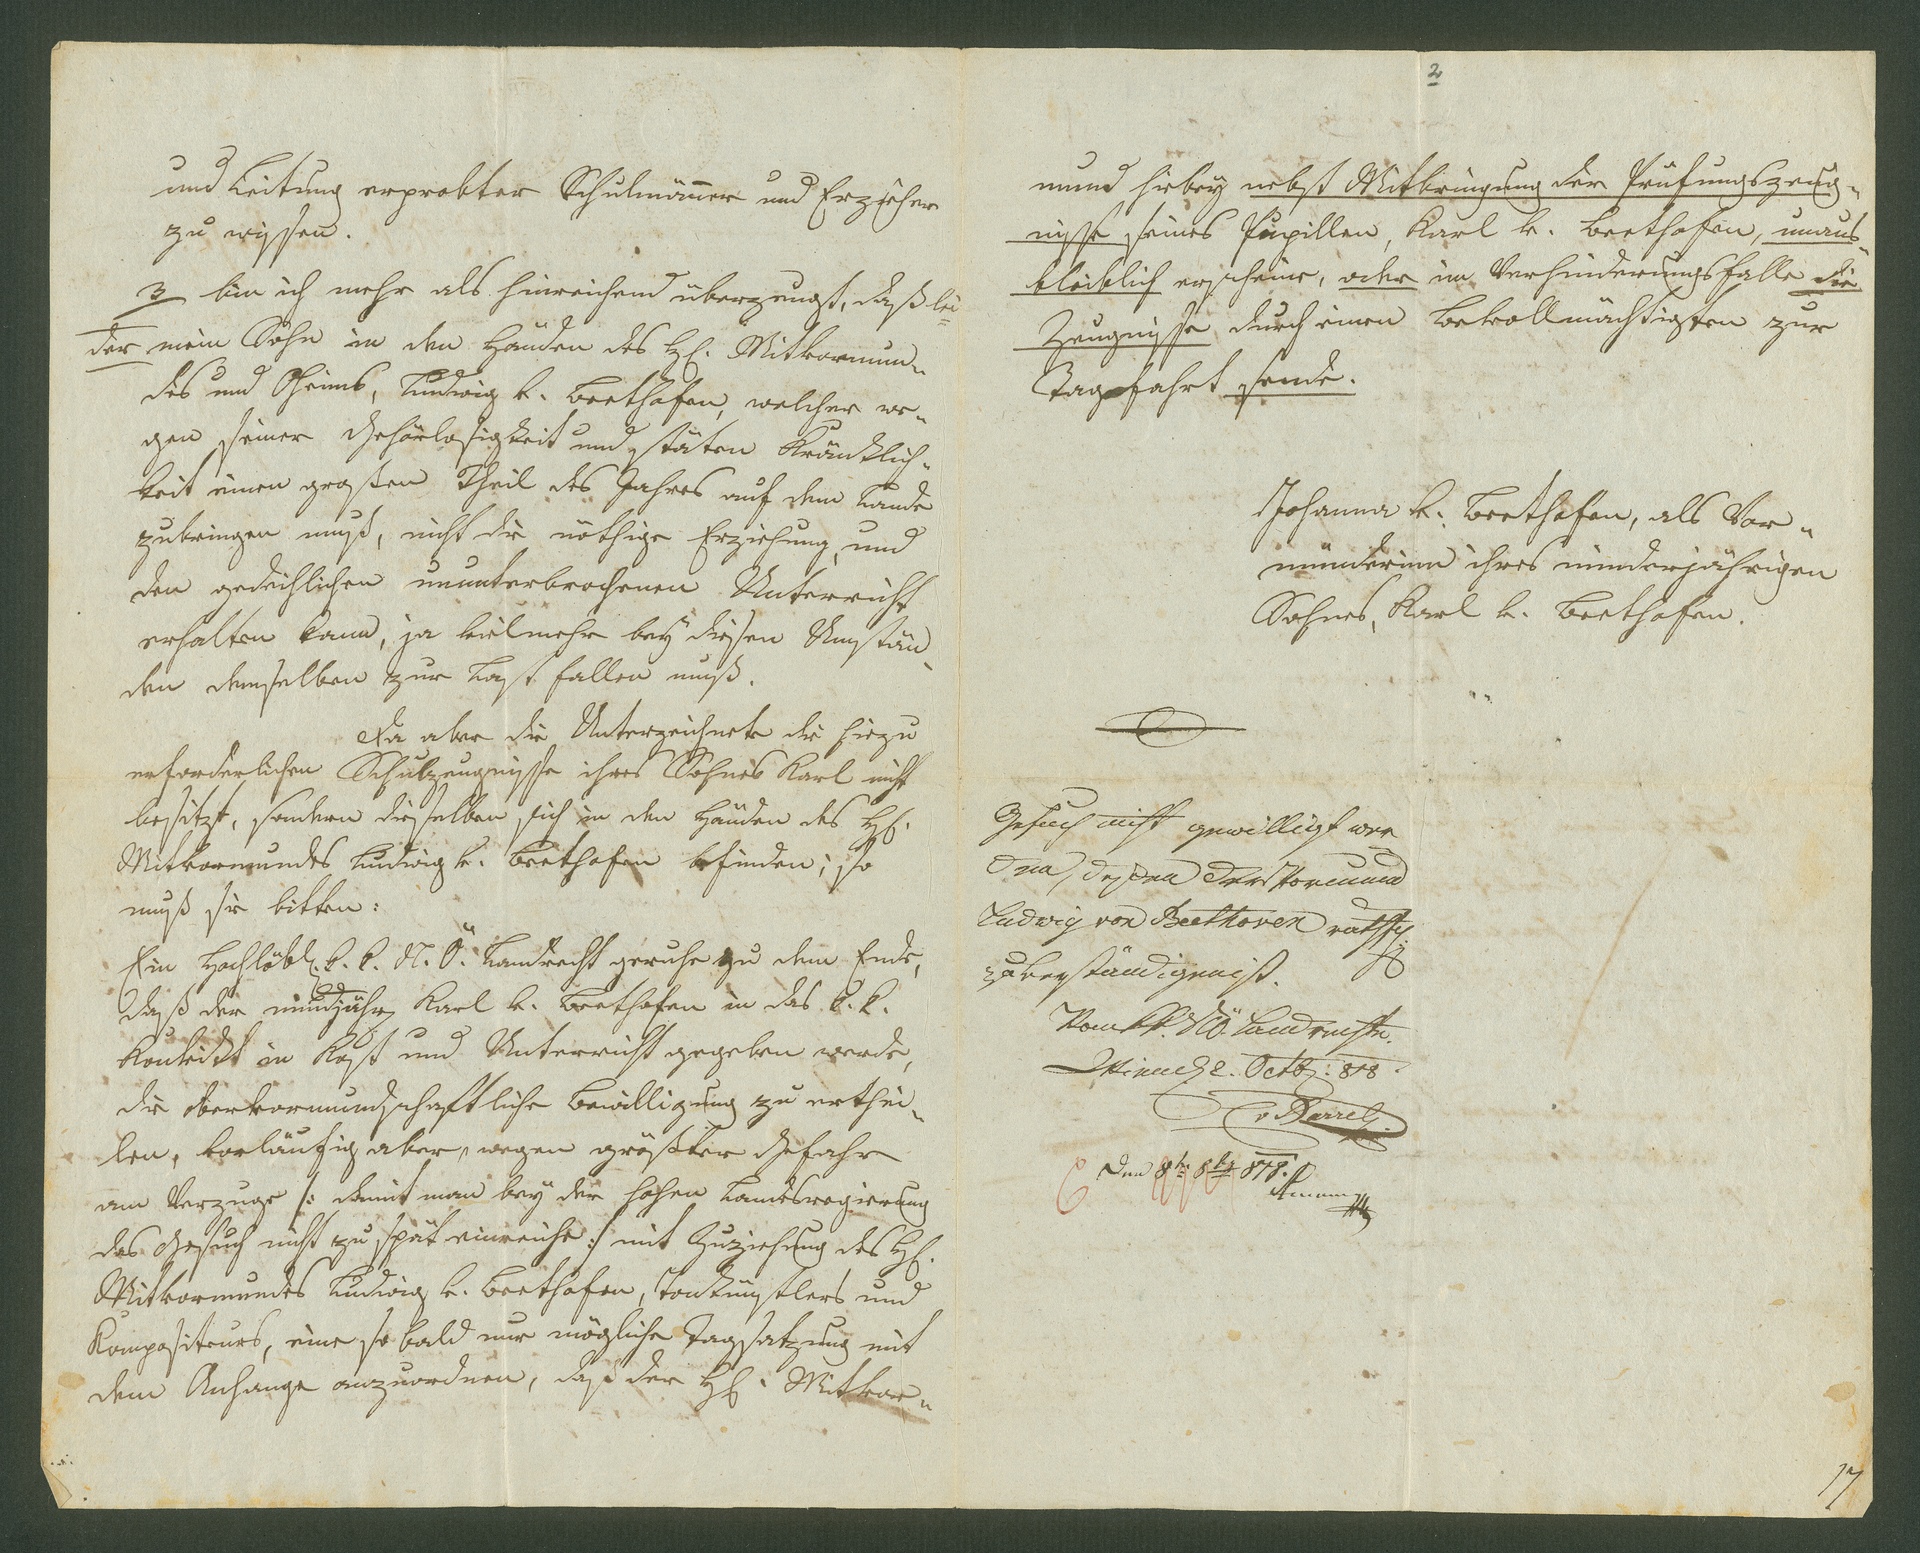 und Leitung erprobter Schulmänner und Erzieher
zu wissen.
3 bin ich mehr als hinreichend überzeugt, daß lei=
der mein Sohn in den Händen des H. Mitvormun-
des und Oheims, Ludwig v. Beethofen, welcher we-
gen seiner Gehörlosigkeit und stäten Kränklich-
keit einen großen Theil des Jahres auf dem Lande
zubringen muß, nicht die nöthige Erziehung, und
den gedeihlichen ununterbrochenen Unterricht
erhalten kann, ja vielmehr bey diesen Umstän-
den demselben zur Last fallen muß.
Da aber die Unterzeichnete die hiezu
erforderlichen Schulzeugnisse ihres Sohnes Karl nicht
besitzt, sondern dieselben sich in den Händen des H.
Mitvormundes Ludwig v. Beethofen befinden; so
muß sie bitten:
Ein Hochlöbl. k. k. N. Ö. Landrecht geruhe zu dem Ende,
daß der mindjähr. Karl v. Beethofen in das k. k.
Konvickt in Kost und Unterricht gegeben werde,
die obervormundschaftliche Bewilligung zu erthei-
len, vorläufig aber, wegen größter Gefahr
am Verzuge /: damit man bey der hohen Landesregierung
das Gesuch nicht zu spät einreiche :/ mit Zuziehung des H.
Mitvormundes Ludwig v. Beethofen, Tonkünstlers und
Kompositeurs, eine so bald nur mögliche Tagsatzung mit
dem Anhange anzuordnen, daß der H. Mitvor-
2
mund hiebey nebst Mitbringung der Prüfungszeug-
nisse seines Pupillen, Karl v. Beethofen, unaus-
bleiblich erscheine, oder im Verhinderungsfalle die
Zeugnisse durch einen Bevollmächtigten zur
Tagsfahrt sende.
Johanna v. Beethofen, als Vor-
münderinn ihres minderjährigen
Sohnes, Karl v. Beethofen.
Gesuch nicht gewilligt wer
den, dessen der Vormund
Ludwig von Beethoven rathschl.
zu verständigen ist.
Vom kk. NÖ. Landrechte.
Wien d 2. Octb. 818.
den 8tn 8br 818.
17